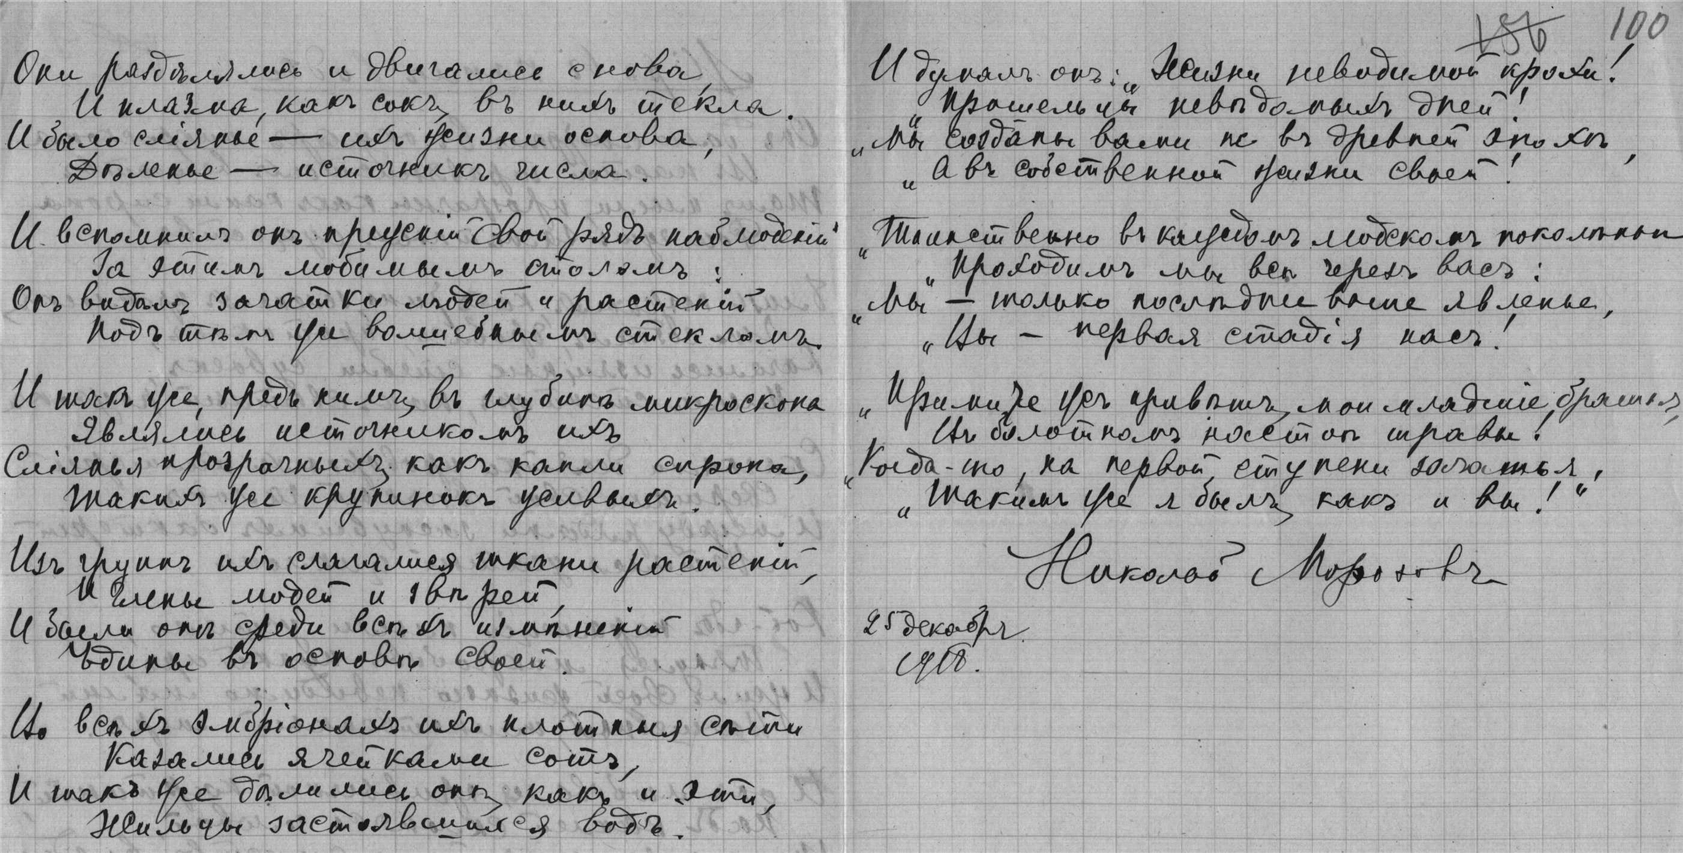 Они раздѣлялись и двигались снова,
И плазма, какъ сокъ, въ нихъ текла.
И было сліянье — ихъ жизни основа,
Дѣленье — источникъ числа.
И вспомнилъ онъ прежній свой рядъ наблюденій
За этимъ любимымъ столомъ:
Онъ видѣлъ зачатки людей и растеній
Подъ тѣмъ же волшебнымъ стекломъ.
И такъ же, предъ нимъ, въ глубинѣ микроскопа
Являлись источникомъ ихъ
Сліянья прозрачныхъ, какъ капли сиропа,
Такихъ же крупинокъ живыхъ.
Изъ группъ ихъ слагалися ткани растеній,
И члены людей и звѣрей,
И были онѣ среди всѣхъ измѣненій
Едины въ основѣ своей.
Во всѣхъ эмбріонахъ ихъ плотныя сѣти
Казались ячейками сотъ,
И такъ же дѣлились онѣ, какъ и эти,
Жильцы застоявшихся водъ.
156 100
И думалъ онъ: „Жизни невидимой крохи!
„Пришельцы невѣдомыхъ дней!
„Мы созданы вами не въ древней эпохѣ,
„А въ собственной жизни своей!
„Таинственно въ каждомъ людскомъ поколѣньи
„Проходимъ мы всѣ черезъ васъ:
„Мы — только послѣднее ваше явленье,
„Вы — первая стадія насъ!
„Примите жъ привѣтъ, мои младшіе братья,
Въ болотномъ настоѣ травы!
„Когда-то, на первой ступени зачатья,
„Такимъ же я былъ, какъ и вы!"
Николай Морозовъ
25 декабря
1918.